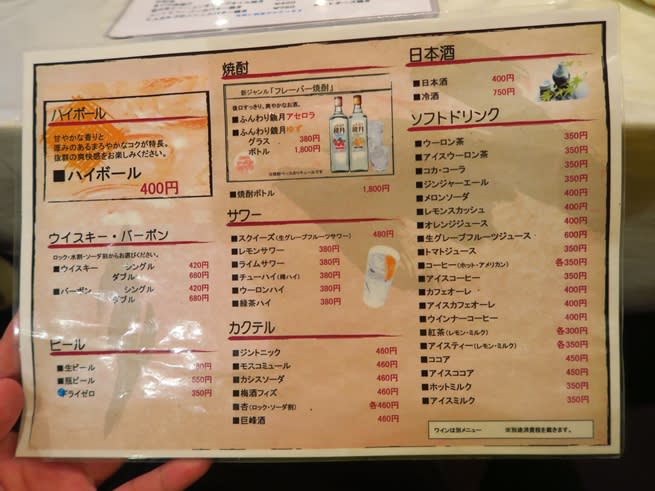 ハイボール
甘やかな香りと
厚みのあるまろやかなコクが特長。
抜群の爽快感をお楽しみください。
■ハイボール
400円
ウイスキー・バーボン
ロック・水割・ソーダ割からお選びください。
■ウイスキー シングル 420円
ダブル 680円
■バーボン シングル 420円
ダブル 680円
ビール
■生ビール
■瓶ビール 550円
ドライゼロ 350円
焼酎
新ジャンル「フレーバー焼酎」
後口すっきり、爽やかなお酒。
■ふんわり鏡月アセロラ
■ふんわり鏡月ゆず
グラス 380円
ボトル 1,800円
※焼酎ベースのリキュールです
■焼酎ボトル 1,800円
サワー
■スクイーズ(生グレープフルーツサワー) 480円
■レモンサワー 380円
■ライムサワー 380円
■チューハイ(樽ハイ) 380円
■ウーロンハイ 380円
■緑茶ハイ 380円
カクテル
■ジントニック 460円
■モスコミュール 460円
■カシスソーダ 460円
■梅酒フィズ 460円
■杏(ロック・ソーダ割) 各460円
■巨峰酒 460円
日本酒
■日本酒 400円
■冷酒 750円
ソフトドリンク
■ウーロン茶 350円
■アイスウーロン茶 350円
■コカ・コーラ 350円
■ジンジャーエール 350円
■メロンソーダ 400円
■レモンスカッシュ 400円
■オレンジジュース 400円
■生グレープフルーツジュース 600円
■トマトジュース 350円
■コーヒー(ホット・アメリカン) 各350円
■アイスコーヒー 350円
■カフェオーレ 400円
■アイスカフェオーレ 400円
■ウインナーコーヒー 400円
■紅茶(レモン・ミルク) 各300円
■アイスティー(レモン・ミルク) 各350円
■ココア 450円
■アイスココア 450円
■ホットミルク 350円
■アイスミルク 350円
ワインは別メニュー ※別途消費税を戴きます。